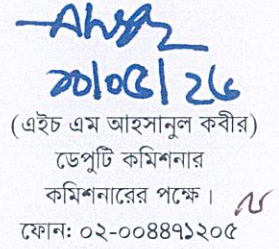 ২০/০৫/২৬
(এইচ এম আহসানুল কবীর)
ডেপুটি কমিশনার
কমিশনারের পক্ষে।
ফোন: ০২-০০৪৪৭১২০৫